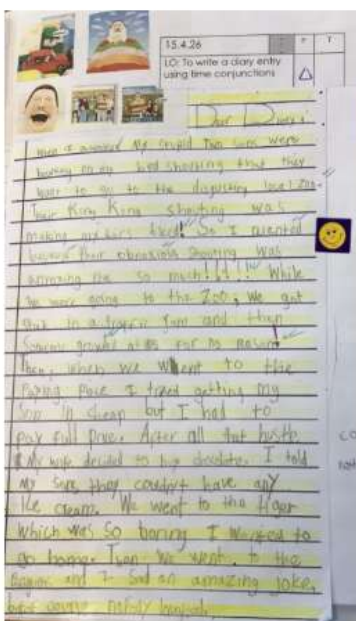 15.4.26
LO: To write a diary entry
using time conjunctions
P
T
Dear Diary,
I My stupid two sons were
on my bed shouting that they
want to go to the disgusting local Zoo.
Their King Kong shouting was
making my ears So I
because their obnoxious shouting was
annoying me so much!!!!! While
we were going to the Zoo, we got
in a traffic Jam and then
growled at us for no reason!
Then, when we went to the
Place I tried getting my
son in cheap but I had to
pay full Price. After all that
My wife decided to buy chocolate. I told
My sons they couldn't have any
ice cream. We went to the tiger
which was so boring I wanted to
go home. we went to the
and I said an amazing joke,
but of course nobody laughed.